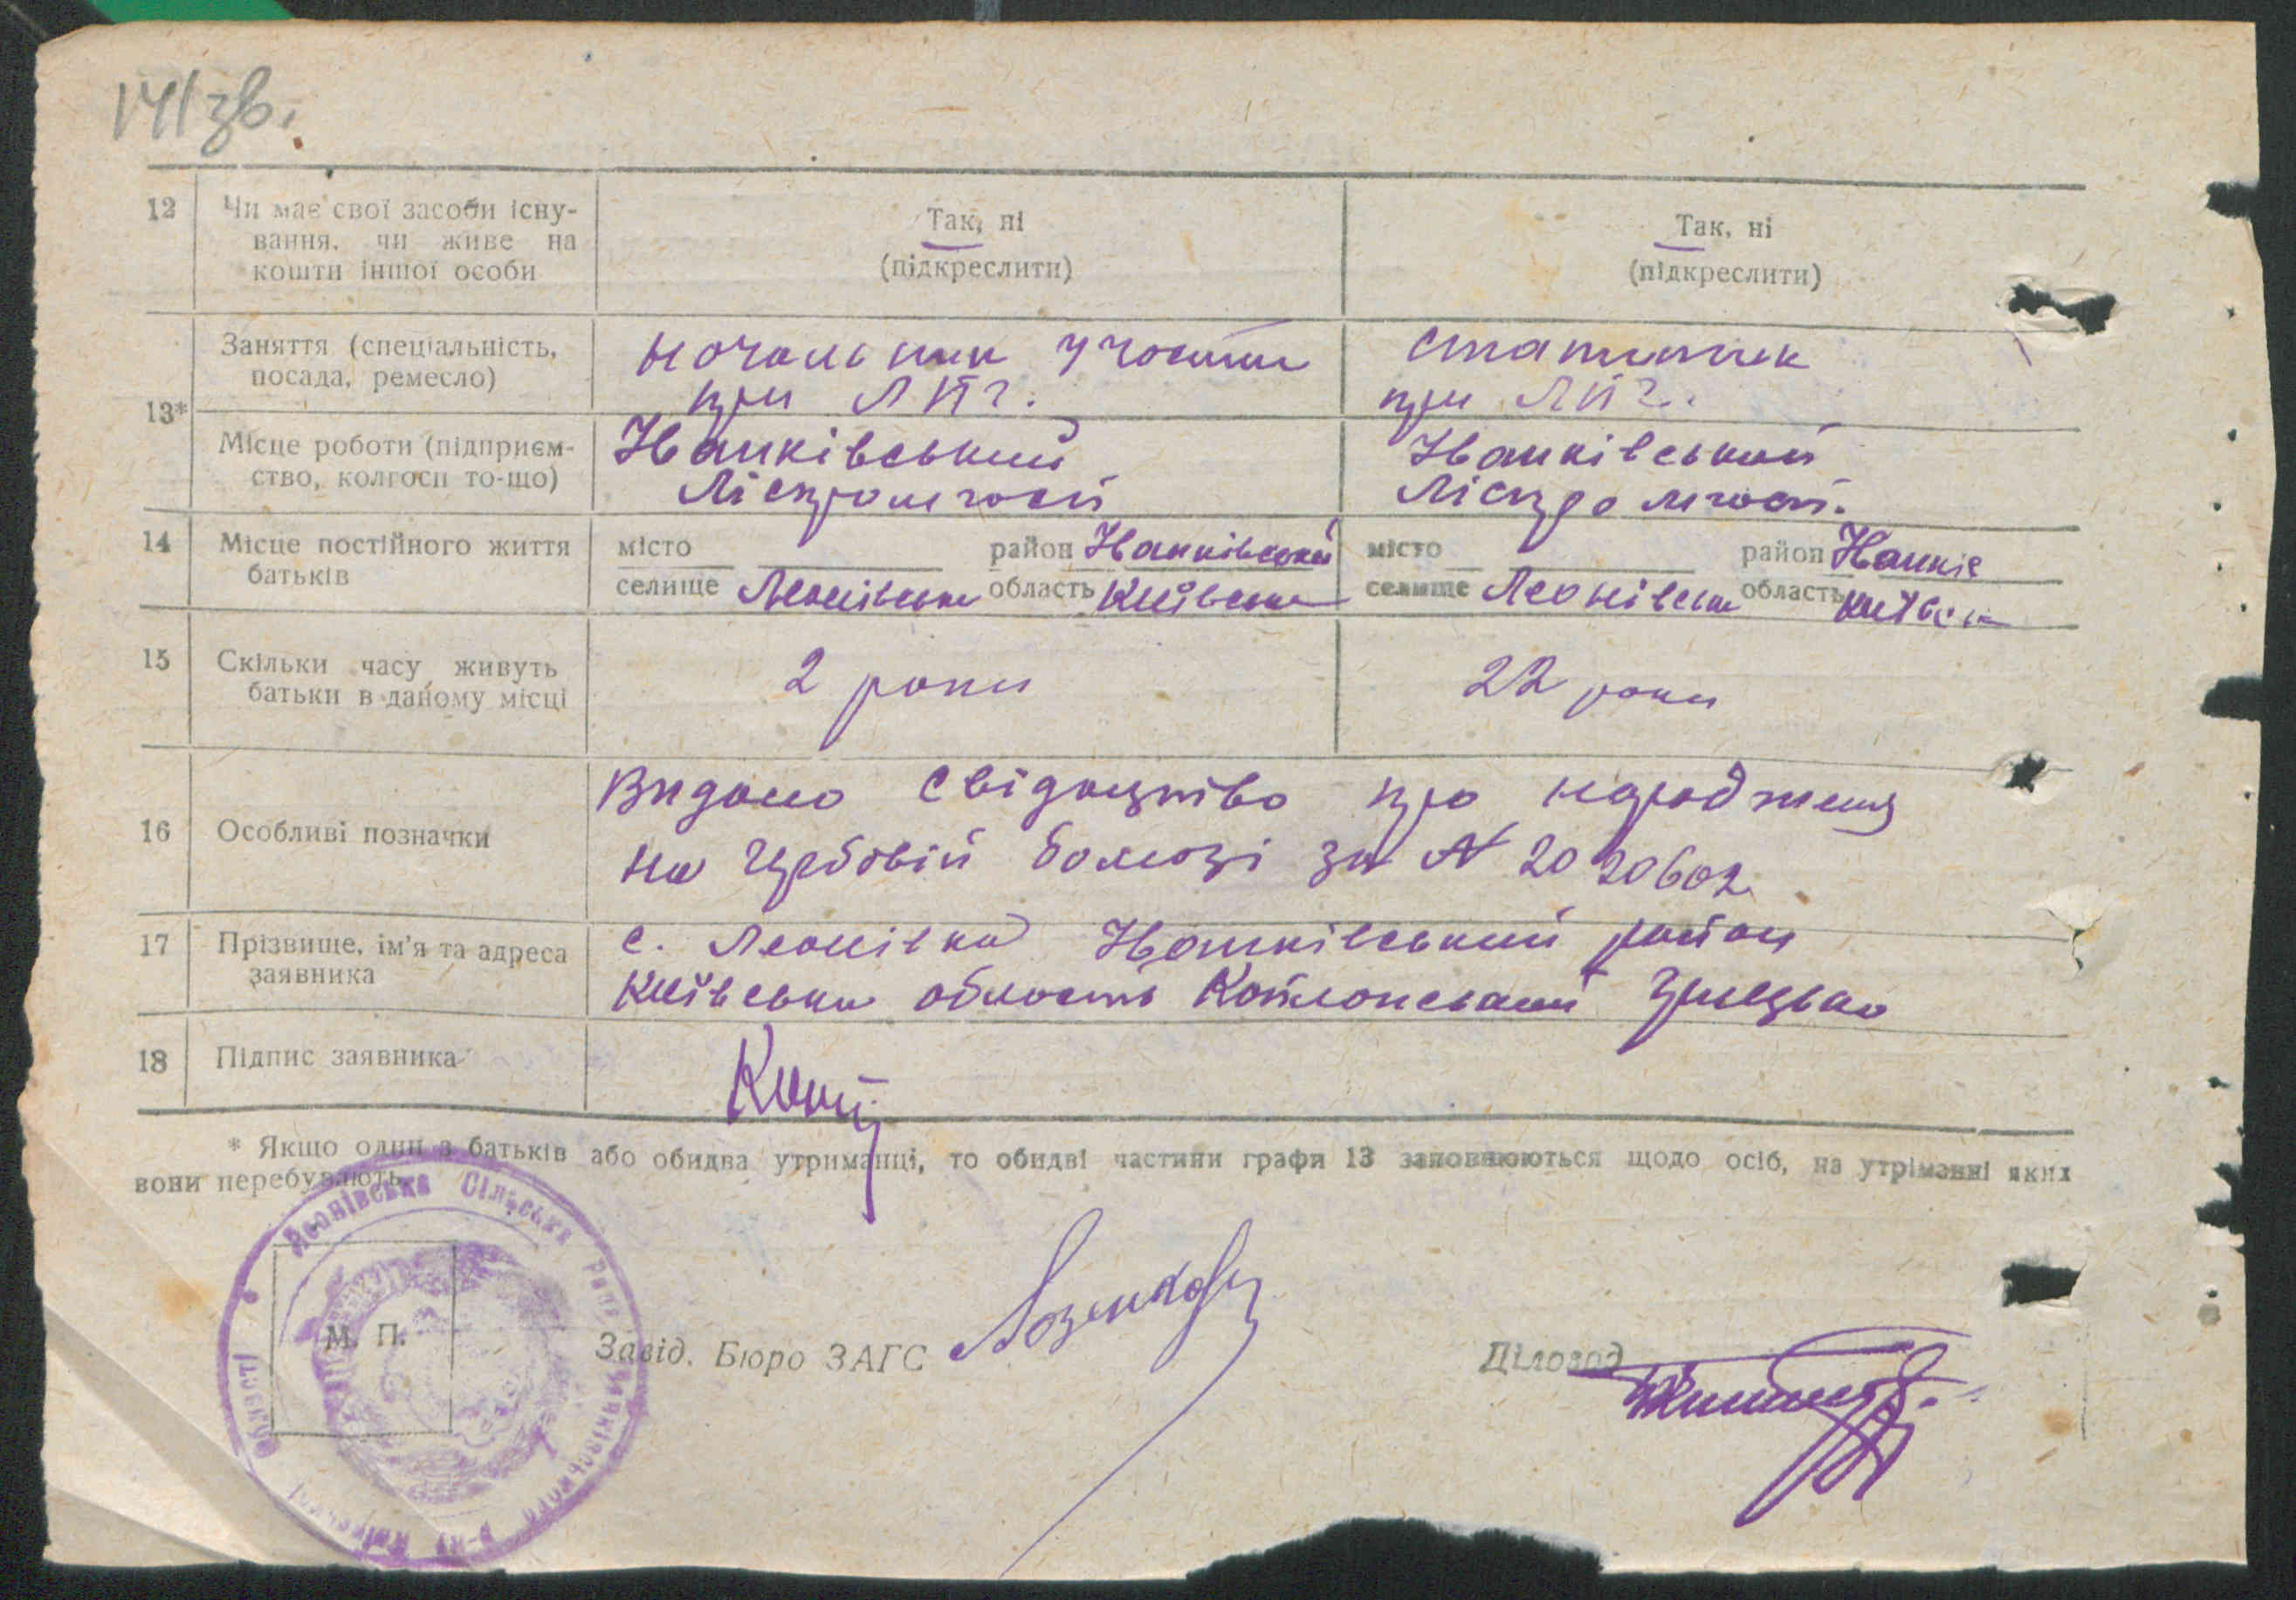 141 зв.
12 Чи має свої засоби існу- Так, ні Так, ні
вання, чи живе на (підкреслити) (підкреслити)
кошти іншої особи
Заняття (спеціальність, Начальник участка статистик
посада, ремесло) при ЛПГ. при ЛПГ.
13*
Місце роботи (підприєм- Іванківський Іванківський
ство, колгосп то-що) Ліспромгосп Ліспромгосп.
14 Місце постійного життя місто район Іванківський місто район Іванків
батьків селище Леонівська область Київська селище Леонівська область Київськ
15 Скільки часу живуть 2 роки 22 роки
батьки в даному місці
Видано свідоцтво про народження
16 Особливі позначки
на гербовій бомозі за № 2020602
17 Прізвище, ім'я та адреса с. Леонівка Іванківський район
заявника Київська область Грицько
18 Підпис заявника
* Якщо один з батьків або обидва утриманці, то обидві частини графи 13 заповнюються щодо осіб, на утріманні яких
вони перебувають.
Леонівська Сільська Рада Іванківського р-ну Київської області
М. П.
Завід. Бюро ЗАГС
Діловод